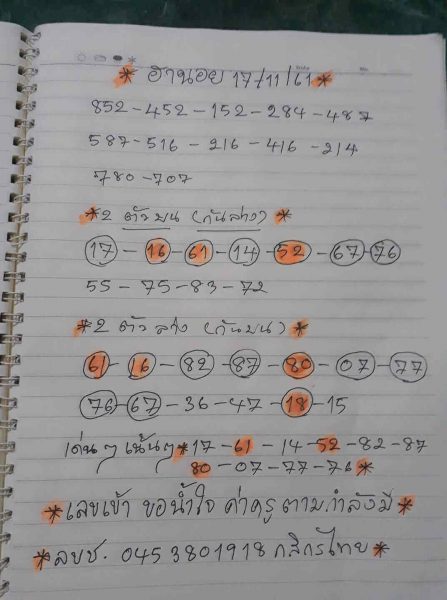 * ฮานอย 17/11/61 *
852-452-152-284-487
587-516-216-416-214
780-707
*2 ตัวบน (กันล่าง) *
17-16-61-14-52-67-76
55-75-83-72
*2 ตัวล่าง (กันบน) *
61-16-82-87-80-07-77
76-67-36-47-18-15
เด่นๆ เน้นๆ *17-61-14-52-82-87
80-07-77-76 *
*เลขเข้า ขอน้ำใจ ค่าครู ตาม.กำลังมี *
*ลบช. 045 3801918 กสิกรไทย *